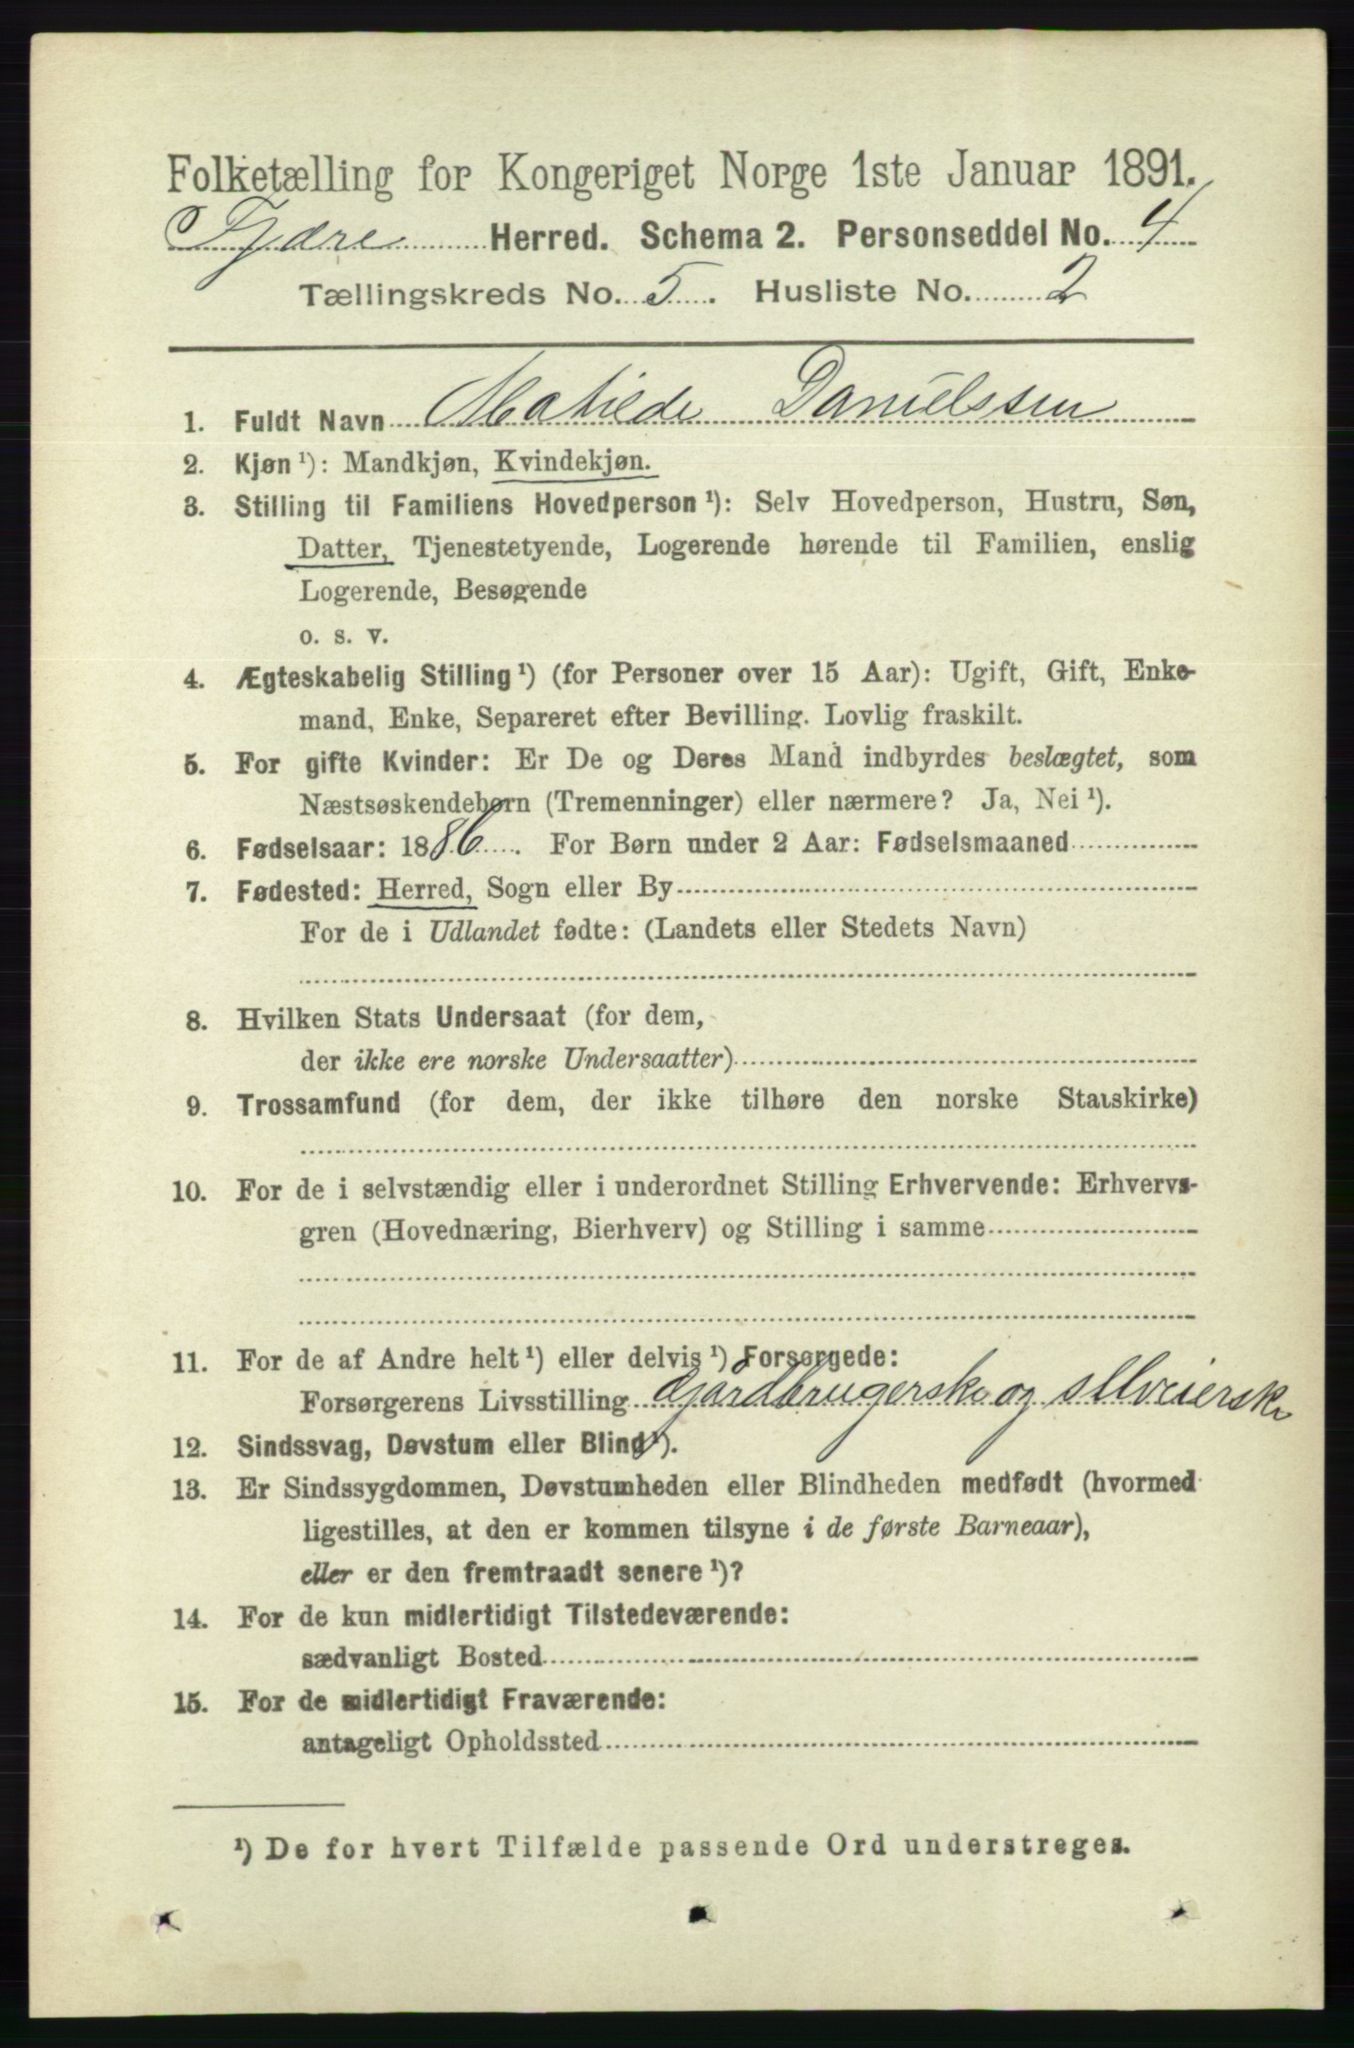 Folketælling for Kongeriget Norge 1ste Januar 1891.
Fjære Herred. Schema 2. Personseddel No. 4
Tællingskreds No. 5. Husliste No. 2
1. Fuldt Navn Matilde Danielssen
2. Kjøn ¹): Mandkjøn, Kvindekjøn.
3. Stilling til Familiens Hovedperson ¹): Selv Hovedperson, Hustru, Søn,
Datter, Tjenestetyende, Logerende hørende til Familien, enslig
Logerende, Besøgende
o. s. v.
4. Ægteskabelig Stilling ¹) (for Personer over 15 Aar): Ugift, Gift, Enke-
mand, Enke, Separeret efter Bevilling. Lovlig fraskilt.
5. For gifte Kvinder: Er De og Deres Mand indbyrdes beslægtet, som
Næstsøskendebørn (Tremenninger) eller nærmere? Ja, Nei ¹).
6. Fødselsaar: 1886. For Børn under 2 Aar: Fødselsmaaned
7. Fødested: Herred, Sogn eller By
For de i Udlandet fødte: (Landets eller Stedets Navn)
8. Hvilken Stats Undersaat (for dem,
der ikke ere norske Undersaatter)
9. Trossamfund (for dem, der ikke tilhøre den norske Statskirke)
10. For de i selvstændig eller i underordnet Stilling Erhvervende: Erhvervs-
gren (Hovednæring, Bierhverv) og Stilling i samme
11. For de af Andre helt ¹) eller delvis ¹) Forsørgede:
Forsørgerens Livsstilling Gjårdbrugerske og Selveierske
12. Sindssvag, Døvstum eller Blind ¹).
13. Er Sindssygdommen, Døvstumheden eller Blindheden medfødt (hvormed
ligestilles, at den er kommen tilsyne i de første Barneaar),
eller er den fremtraadt senere ¹)?
14. For de kun midlertidigt Tilstedeværende:
sædvanligt Bosted
15. For de midlertidigt Fraværende:
antageligt Opholdssted
¹) De for hvert Tilfælde passende Ord understreges.